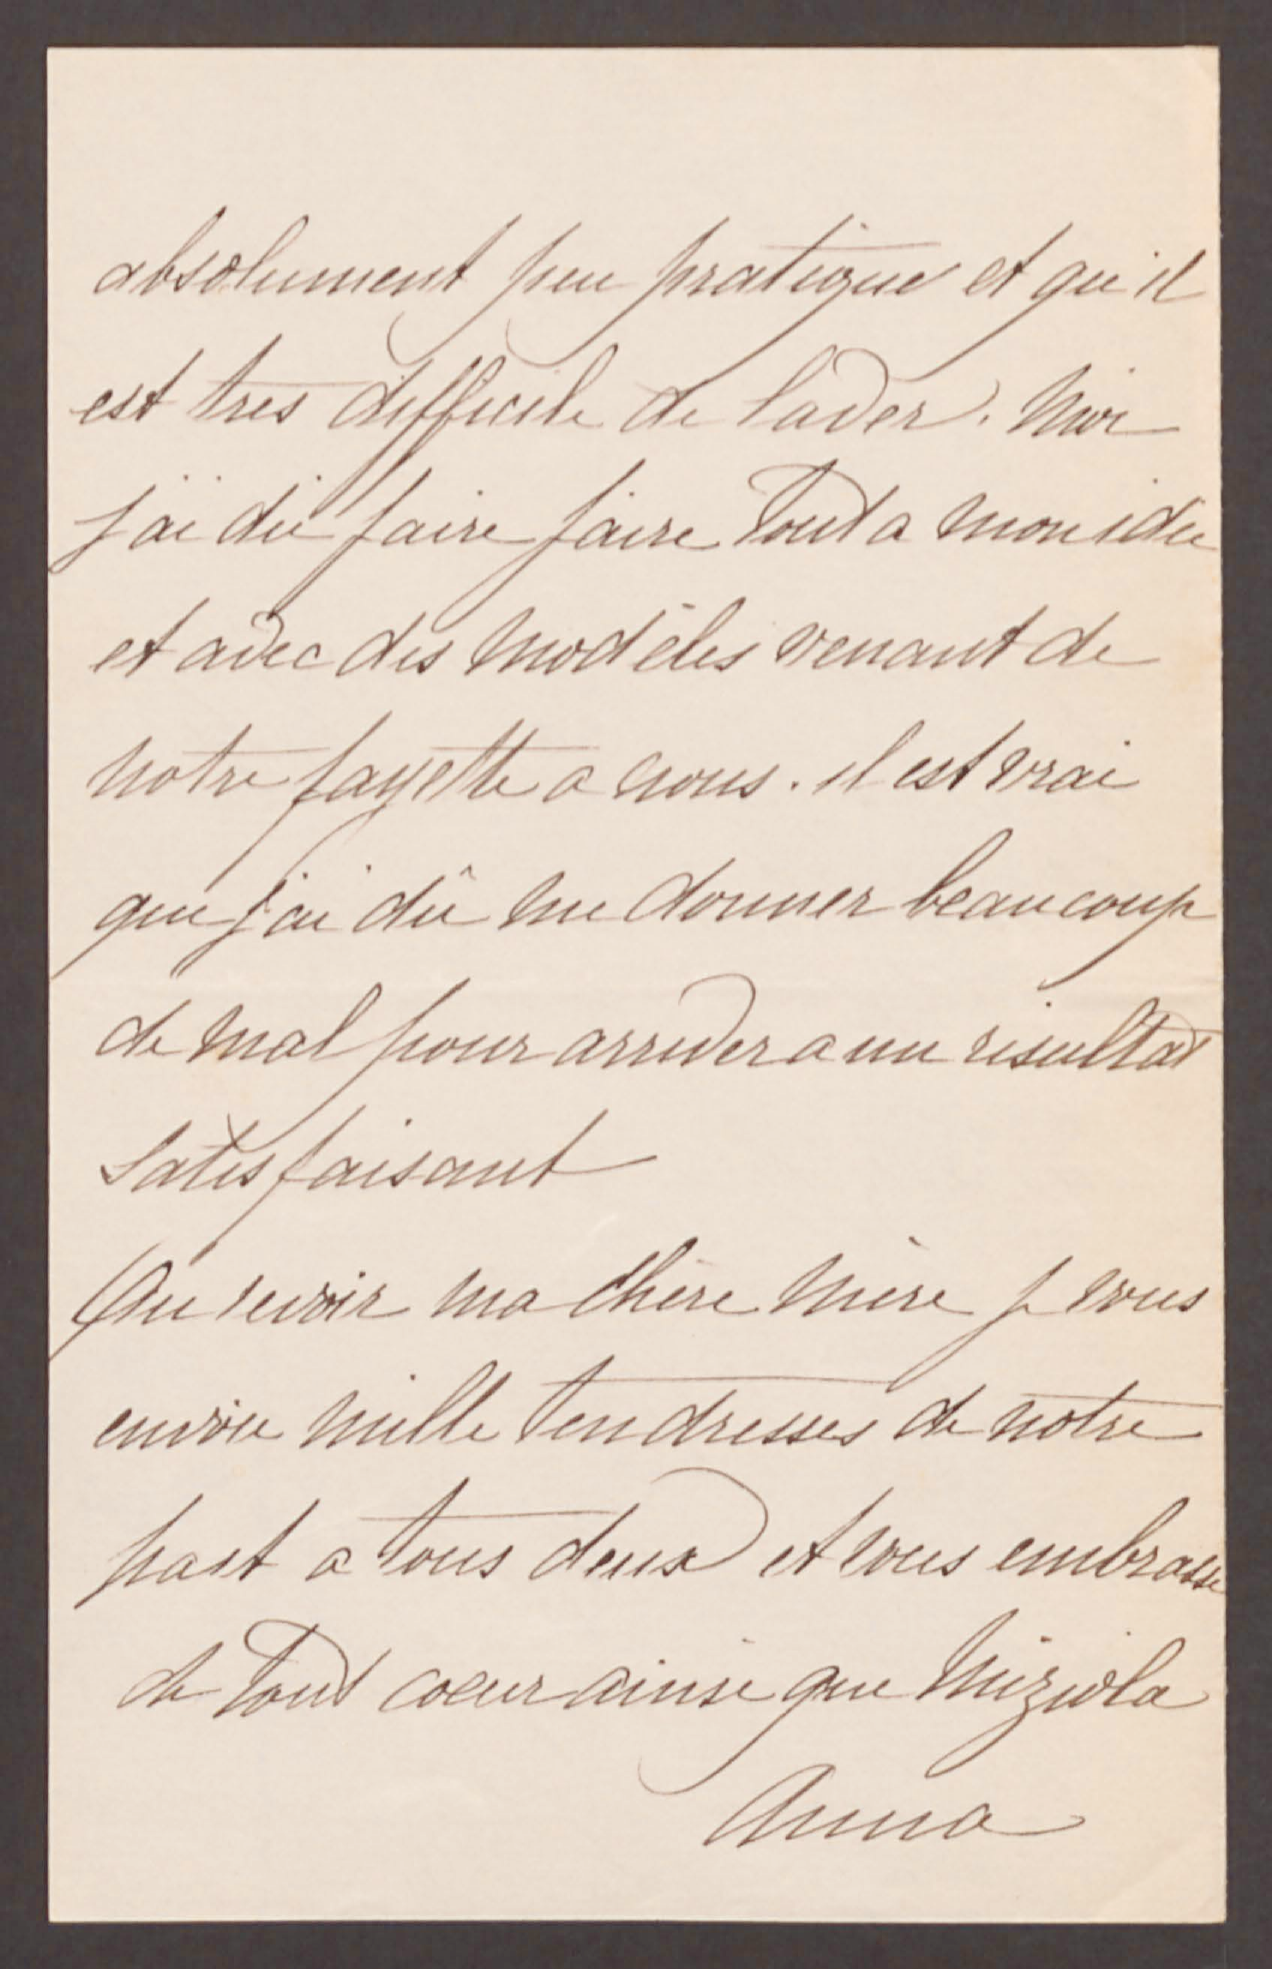 absolument peu pratique et qu'il
est tres difficile de laver. Moi
j'ai dû faire faire tout a mon idée
et avec des modèles venant de
notre fayette a nous. il est vrai
que j'ai dû me donner beaucoup
de mal pour arriver a un résultat
satisfaisant
Au revoir ma chère Mère je vous
envoie mille tendresses de notre
part a tous deux et vous embrasse
de tout coeur ainsi que
Anna